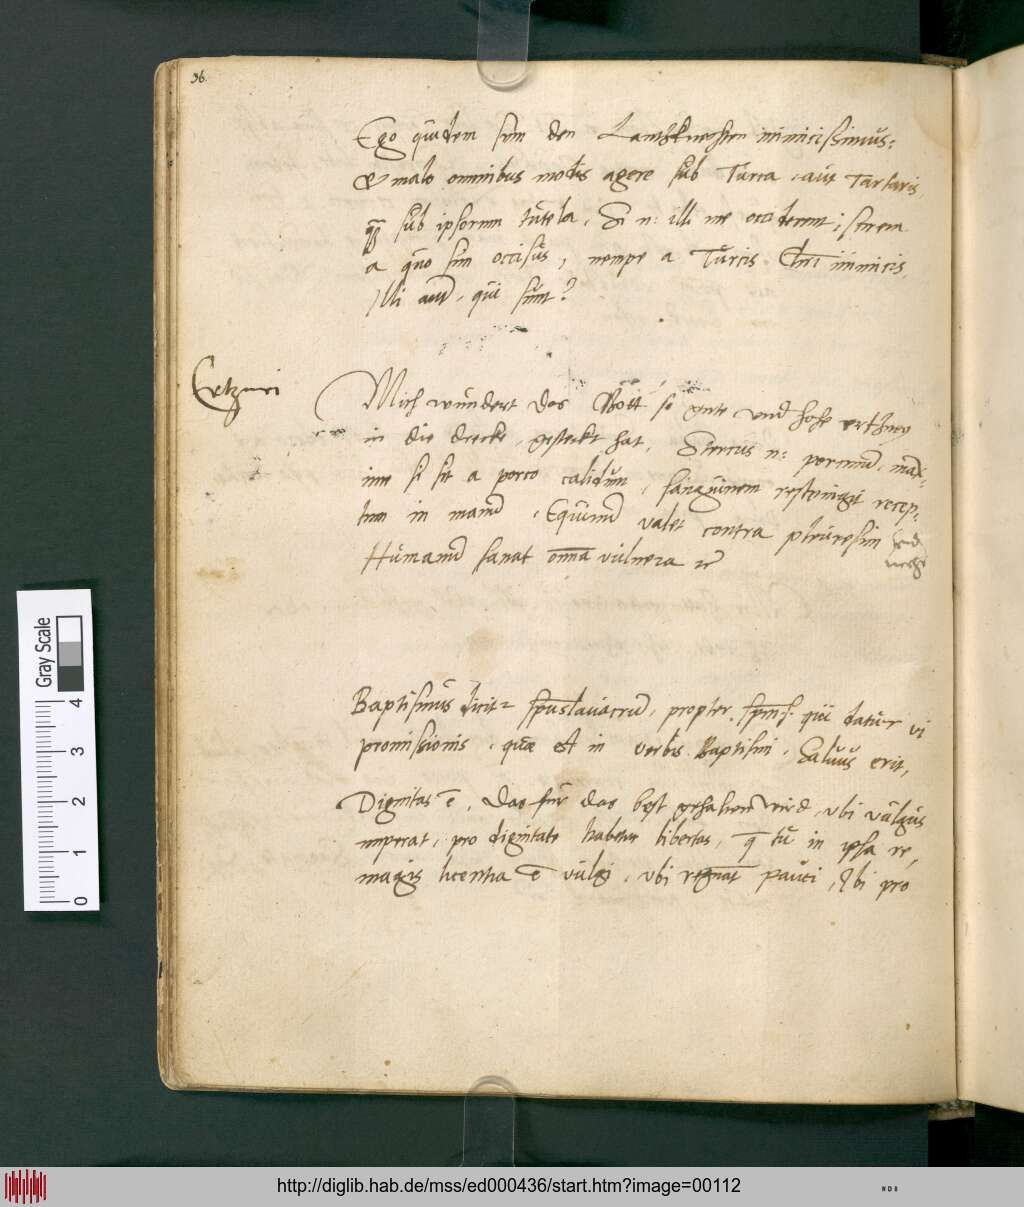 96.
Ego quidem sum den Lantzknechten inimicissimus:
& malo omnibus modis agere sub Turca, aut Tartaris,
sub ipsorum tutela. Si n: illi me occiderent; scirem
a quo sim occisus, nempe a Turcis Chri inimicis,
Illi aut, qui sunt?
Ertznei
Mich wundert das Gott so gute und hohe ertzney
in die drecke gesteckt hat, Stercus n: porcinu, max-
ime si sit a porco calidum, sanguinem restringit recep-
tum in manu, Equinu valet contra pleuresim
Humanu sanat omna vulnera
Baptismus dicit spus lavacru, propter qui datur vi
promissionis, quae est in verbis Baptismi, Saluus erit,
Dignitas e, das fur das best gehalten wird, ubi vulgus
imperat, pro dignitate habetur libertas, q tu in ipsa re,
magis licentia e vulgi, ubi regnat pauci, Ibi pro
Gray Scale
4
3
2
1
0
http://diglib.hab.de/mss/ed000436/start.htm?image=00112